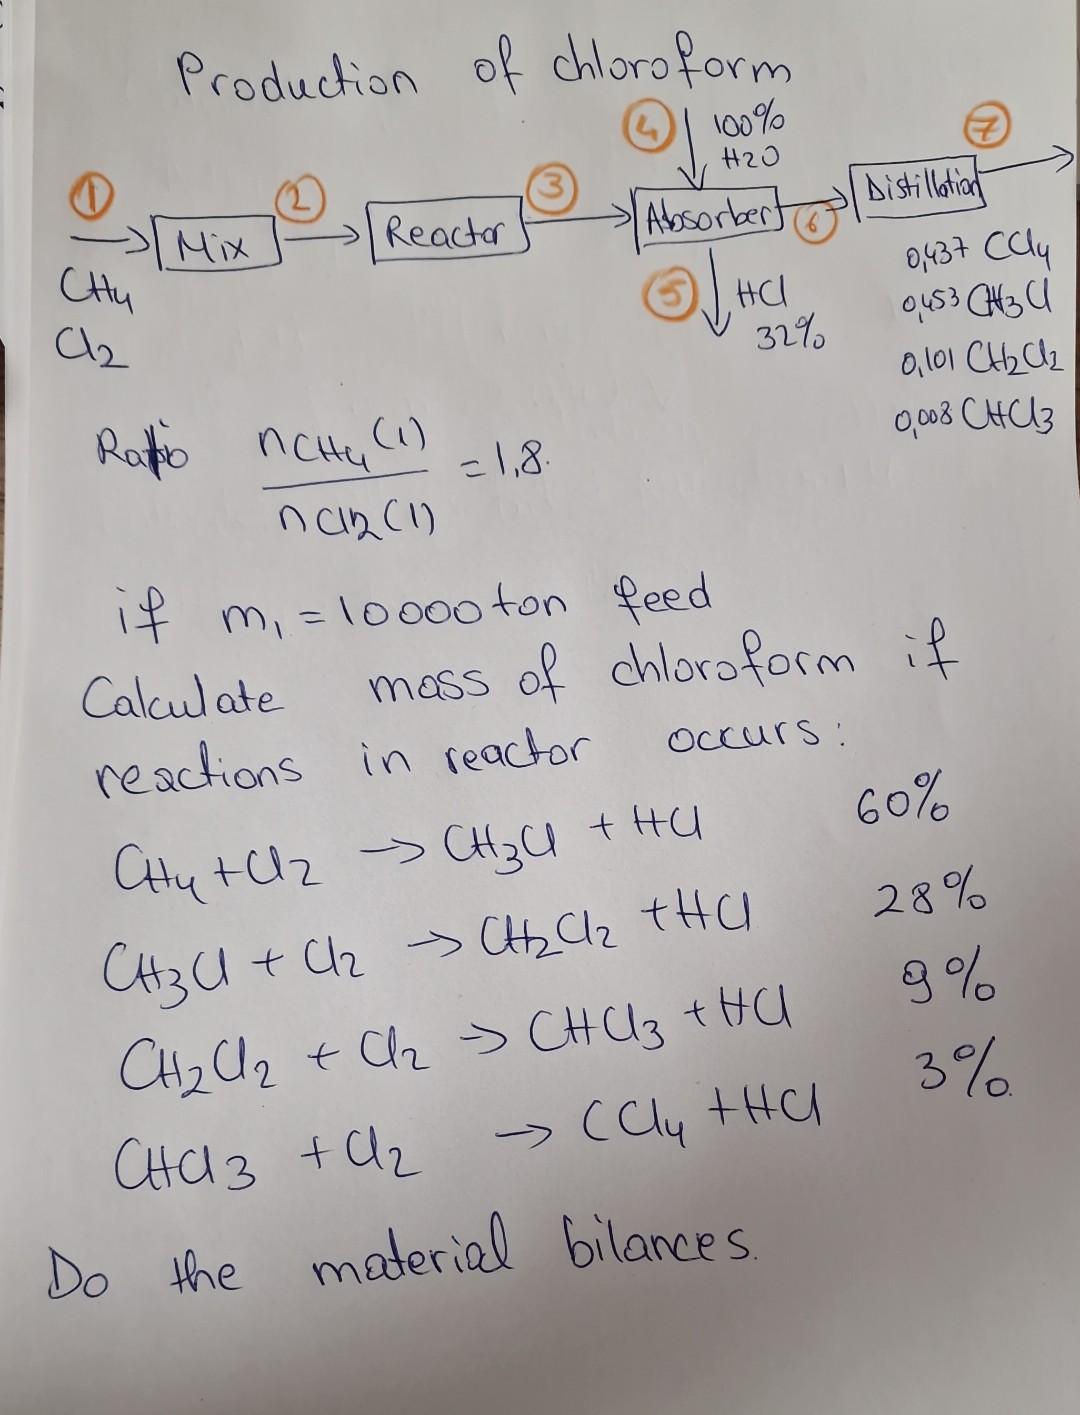 Production of chloroform
① ② ③ ④ 100% H2O ⑦
Mix Reactor Absorber ⑥ Distillation
CH4
Cl2
⑤ HCl
32%
0,437 CCl4
0,453 CH3Cl
0,101 CH2Cl2
0,008 CHCl3
Ratio nCH4 (1) / nCl2 (1) = 1,8.
if m1 = 10000 ton feed
Calculate mass of chloroform if
reactions in reactor occurs:
CH4 + Cl2 → CH3Cl + HCl 60%
CH3Cl + Cl2 → CH2Cl2 + HCl 28%
CH2Cl2 + Cl2 → CHCl3 + HCl 9%
CHCl3 + Cl2 → CCl4 + HCl 3%.
Do the material bilances.